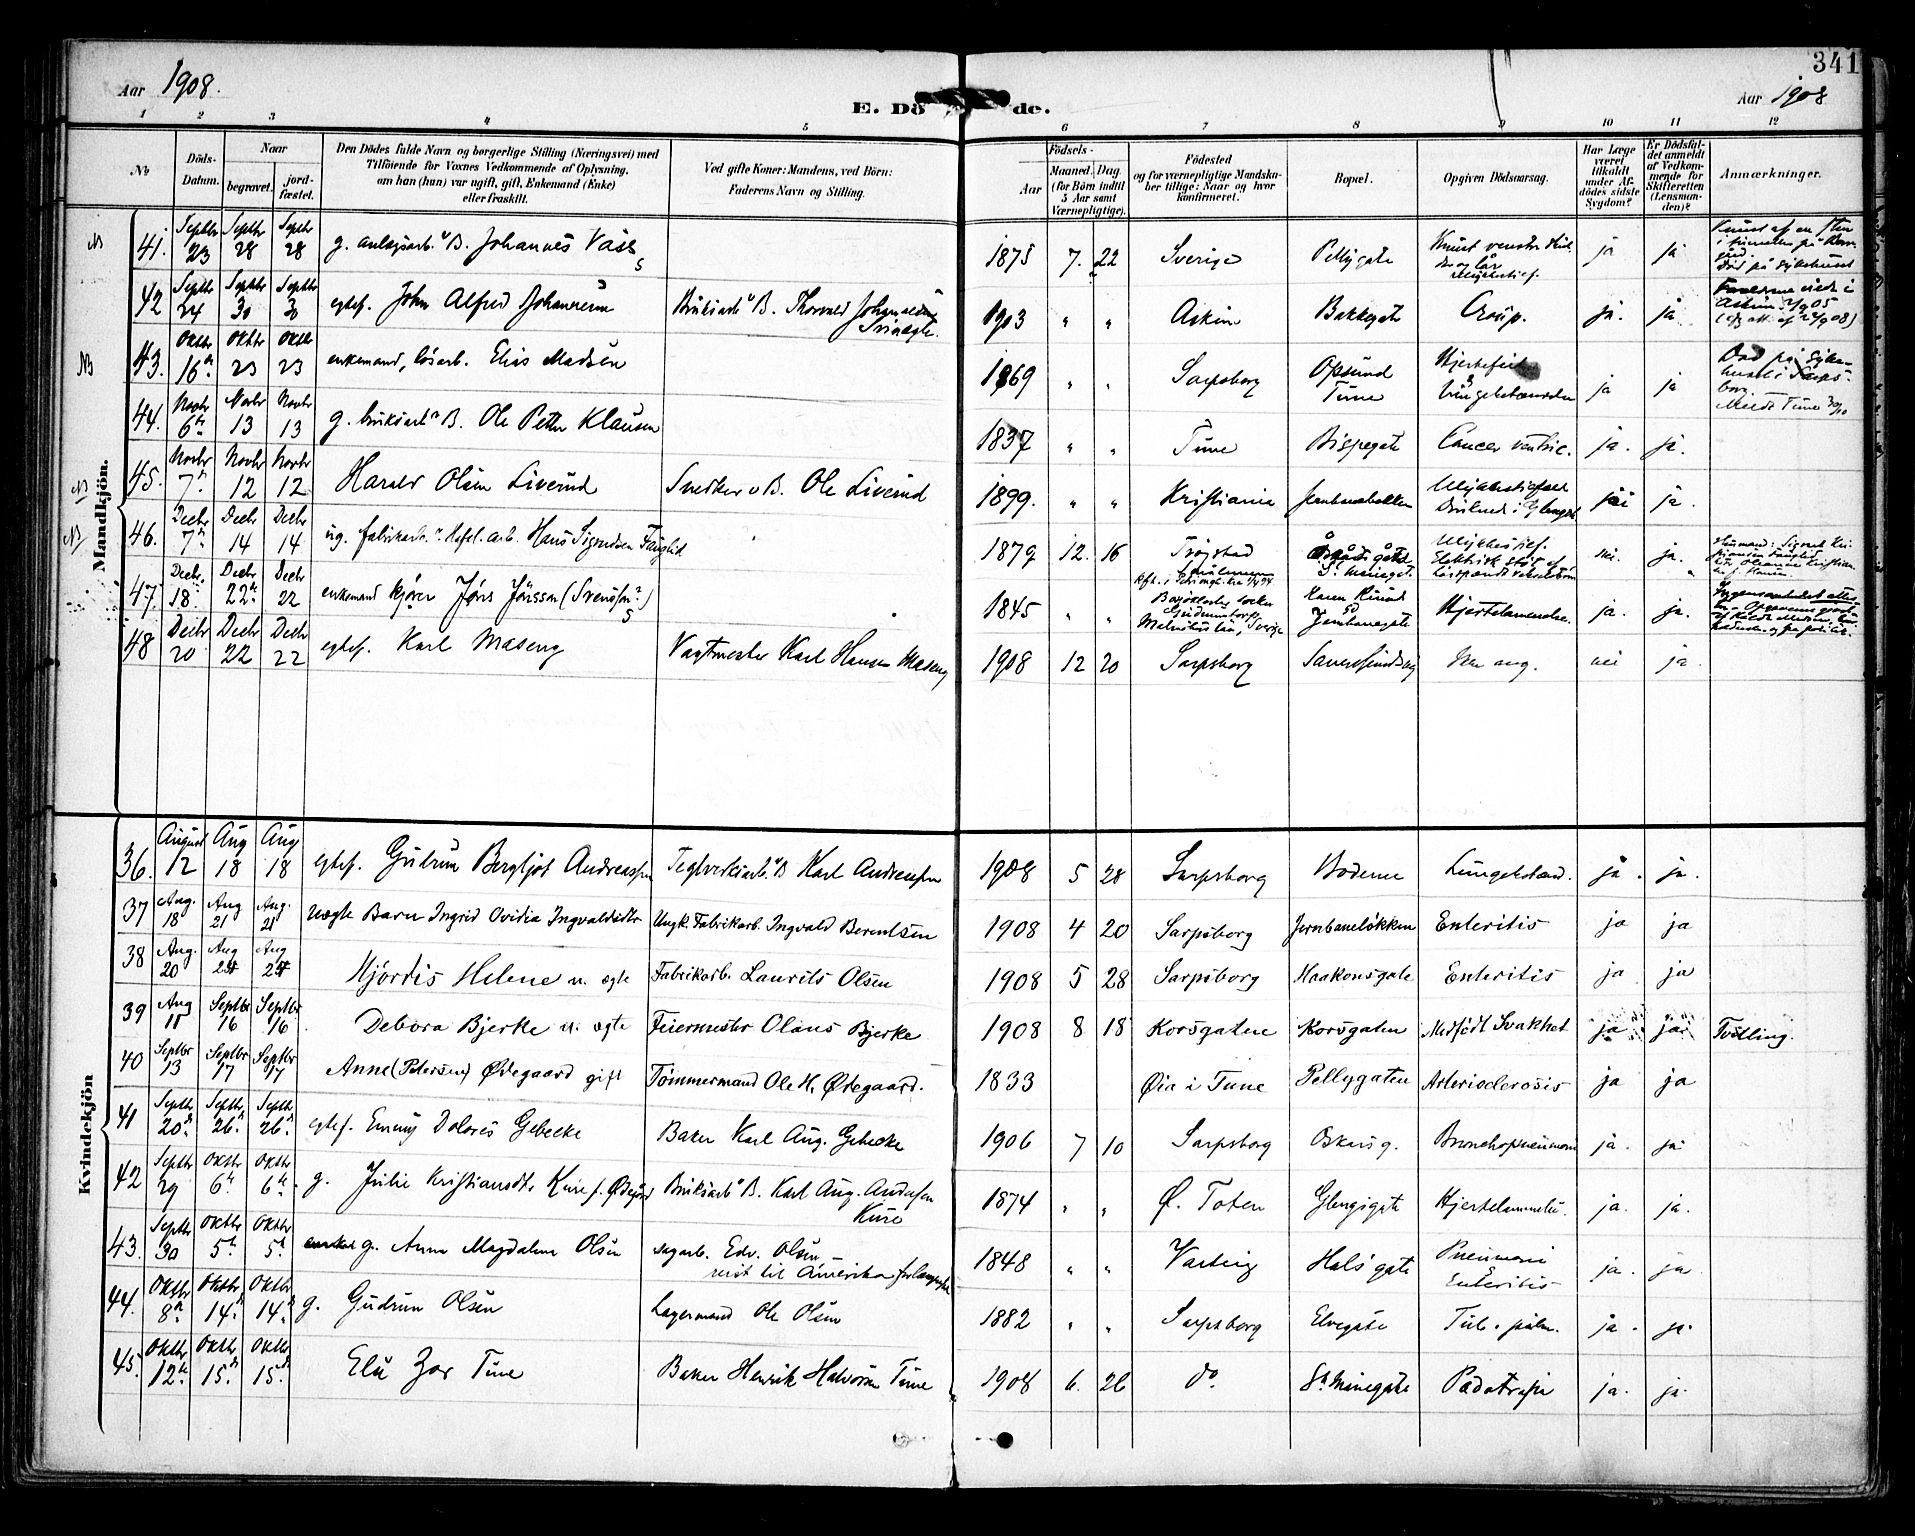 341
Aar 1908.
E. Dö de.
Aar 1908
1 2 3 4 5 6 7 8 9 10 11 12
No
Döds-Datum.
Naar
begravet.
jord-fæstet.
Den Dödes fulde Navn og borgerlige Stilling (Næringsvei) med
Tilföiende for Voxnes Vedkommende af Oplysning,
om han (hun) var ugift, gift, Enkemand (Enke)
eller fraskilt.
Ved gifte Koner: Mandens, ved Börn:
Faderens Navn og Stilling.
Födsels-
Aar
Maaned. Dag.
(for Börn indtil
5 Aar samt
Værnepligtige).
Födested
og for værnepligtige Mandska-
ber tillige: Naar og hvor
konfirmeret.
Bopæl.
Opgiven Dödsaarsag.
Har Læge
været
tilkaldt
under Af-
dödes sidste
Sygdom?
Er Dödsfal-
det anmeldt
af Vedkom-
mende for
Skifteretten
(Lensman-
den)?
Anmærkninger.
Mandkjön.
41. Septbr 23 Septbr 28 Septbr 28 g. anlægsarb. B. Johannes 1875 7. 22 Sverige Pellygate ja ja
Död på sykehuset
42 Septbr 24 Septbr 30 Septbr 30 egtef. John Alfred Johannesen Bruksarb B. Thorvald Johannesen 1903 " " Askim Bakkegate Croup. ja. ja
43. Oktbr 16de Oktbr 23 Oktbr 23 enkemand, lösarb. Elias Madsen 1869 " " Sarpsborg Opsund Tune Hjertefeil Lungebetændelse ja ja Död på syke-
huset i Sarps-
borg
Meldt Tune 30/10
44. Novbr 6te Novbr 13 Novbr 13 g. bruksarbr B. Ole Petter Klausen 1837 " " Tune Bispegate Cancer ventric. ja. ja.
45. Novbr 7de Novbr 12 Novbr 12 Harald Olsen Liverud Snedker o B. Ole Liverud 1899. " " Kristiania Jernbaneløkken Ulykkestilfælde Druknet i Glengsh. ja
46. Decbr 7de Decbr 14 Decbr 14 ug. fabrikarb. Hans Sigvardsen Fuglid 1879 12. 16 Trögstad St. Mariegate Ulykkestilf. Elektrisk stöt nei ja.
47. Decbr. 18. Decbr 22 Decbr 22 enkemand kjörer Jöns Jönsson (Svensson?) 1845 " " Malmöhus län, Sverige Karen Knud Jernbanegate Hjertelammelse. ja. ja.
48 Decbr 20 Decbr 22 Decbr 22 egtef. Karl Maseng Vagtmester Karl Hansen Maseng 1908 12 20 Sarpsborg Ikke ang. nei ja
Kvindekjön
36. August 12 Aug 18 Aug 18 egtef. Gudrun Bergljot Andreassen Teglverksarb. B Karl Andreassen 1908 5 28 Sarpsborg Boderne Lungebetænd. ja. ja.
37 Aug. 18 Aug 21 Aug. 21 Uægte Barn Ingrid Ovidia Ingvaldsdtr Ungk. Fabrikarb. Ingvald Berentsen 1908 4 20 Sarpsborg Jernbaneløkken Enteritis ja ja
38 Aug. 20 Aug 24 Aug 24 Hjördis Helene u. ægte Fabrikarb. Laurits Olsen 1908 5 28 Sarpsborg Haakonsgate Enteritis ja ja
39 Aug Septbr 16 Septbr 16 Debora Bjerke u. ægte Feiermester Olaus Bjerke 1908 8 18 Korsgaten Korsgaten Medfödt Svakhet ja ja Tvilling.
40 Septbr 13 Septbr 17 Septbr 17 Anne (Petersen) Ødegaard gift Tömmermand Ole H. Ødegaard. 1833 Øia i Tune Pellygaten Arteriosclerosis ja ja
41 Septbr 20de Septbr 26. Septbr 26. egtef. Emmy Dolores Gebecke Baker Karl Aug. Gebecke 1906 7 10 Sarpsborg Oskarsg. Bronchopneumoni ja. ja
42 Septbr 29 Oktbr 6te Oktbr 6te g. Julie Kristiansdtr Kure f. Ødegård Bruksarb B. Karl Aug. Andersen Kure 1874 " " Ø. Toten Glengsgate Hjertelammelse. ja. ja.
43. Septbr 30 Oktbr 5te Oktbr 5te g. Anne Magdalena Olsen sagarb. Edv. Olsen – reist til Amerika for længe siden 1848 " " Varteig Halsgate Pneumoni Enteritis ja. ja
44. Oktbr 8de Oktbr 14de Oktbr 14de g. Gudrun Olsen Lagermand Ole Olsen 1882 " " Sarpsborg Elvegate Tub. pulm. ja. ja.
45. Oktbr 12te Oktbr 15de Oktbr 15de Tune Baker Henrik Halvorsen Tune 1908 6. 26 do. St. Mariegate Pædatrofi ja. ja.